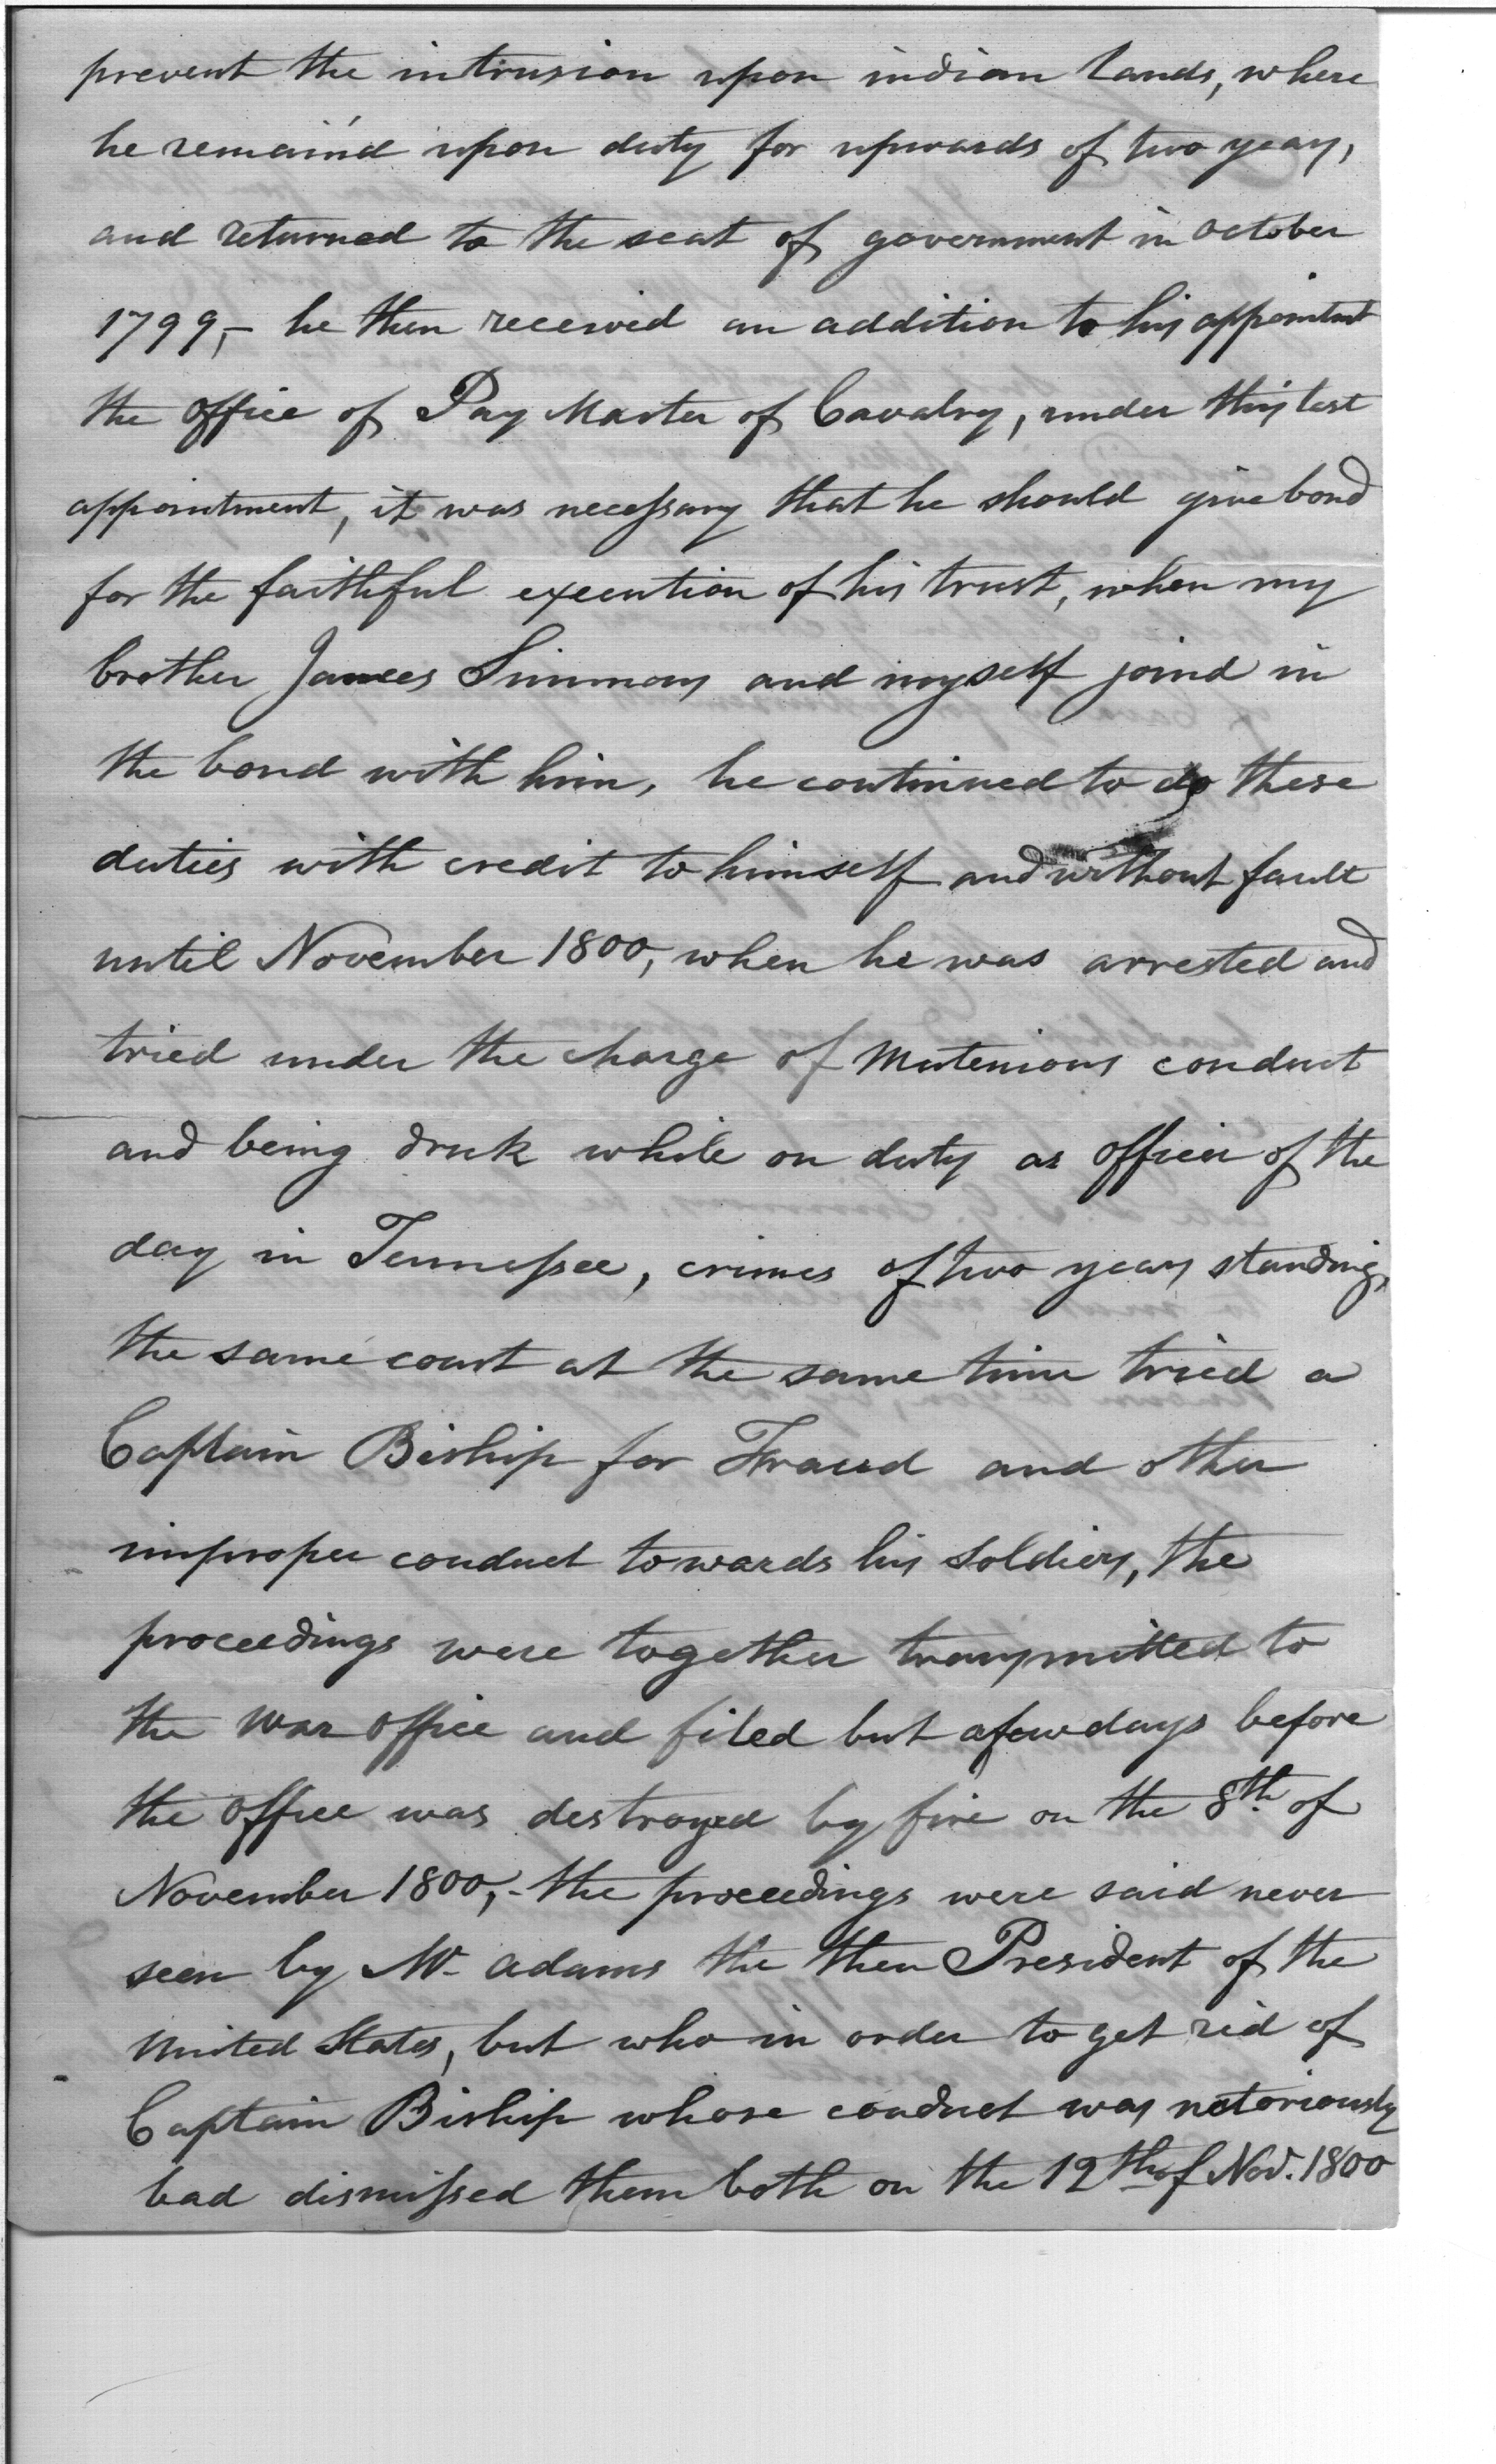 prevent the intrusion upon indian lands, where
he remain'd upon duty for upwards of two years,
and returned to the seat of government in October
1799,- he then received an addition to his appointmt
the office of Pay Master of Cavalry, under this last
appointment, it was necessary that he should give bond
for the faithful execution of his trust, when my
brother James Simmons and myself joind in
the bond with him, he continued to do these
duties with credit to himself and without fault
until November 1800, when he was arrested and
tried under the charge of Mutenious conduct
and being druk while on duty as officer of the
day in Tennessee, crimes of two years standing,
the same court at the same time tried a
Captain Biship for Fraud and other
improper conduct towards his soldiers, the
proceedings were together transmitted to
the War office and filed but a few days before
the office was destroyed by fire on the 8th of
November 1800,- the proceedings were said never
seen by Mr. Adams the then President of the
United States, but who in order to get rid of
Captain Biship whose conduct was notoriously
bad dismissed them both on the 12th of Nov. 1800